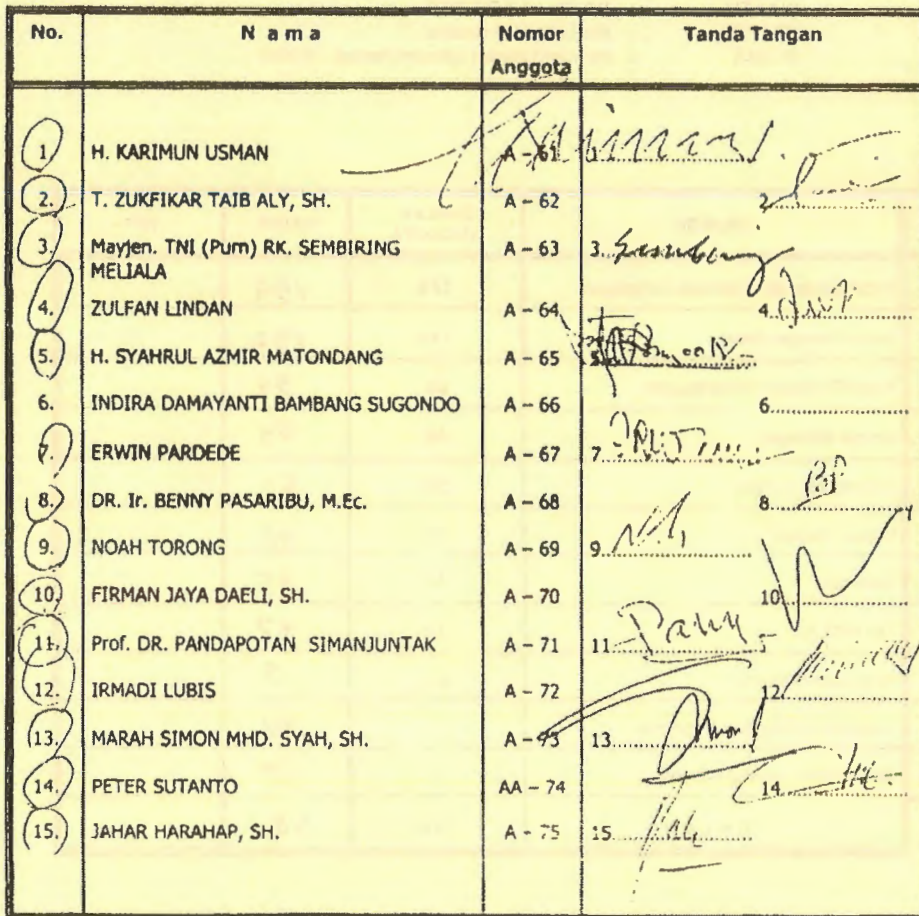 No. N a m a Nomor Anggota Tanda Tangan
1 H. KARIMUN USMAN A – 61 1
2. T. ZUKFIKAR TAIB ALY, SH. A – 62 2
3. Mayjen. TNI (Purn) RK. SEMBIRING A – 63 3.
MELIALA
4. ZULFAN LINDAN A – 64 4
5. H. SYAHRUL AZMIR MATONDANG A – 65 5
6. INDIRA DAMAYANTI BAMBANG SUGONDO A – 66 6
7. ERWIN PARDEDE A – 67 7
8. DR. Ir. BENNY PASARIBU, M.Ec. A – 68 8
9. NOAH TORONG A – 69 9
10. FIRMAN JAYA DAELI, SH. A – 70 10
11. Prof. DR. PANDAPOTAN SIMANJUNTAK A – 71 11
12. IRMADI LUBIS A – 72 12
13. MARAH SIMON MHD. SYAH, SH. A – 73 13
14. PETER SUTANTO AA – 74 14
15. JAHAR HARAHAP, SH. A – 75 15